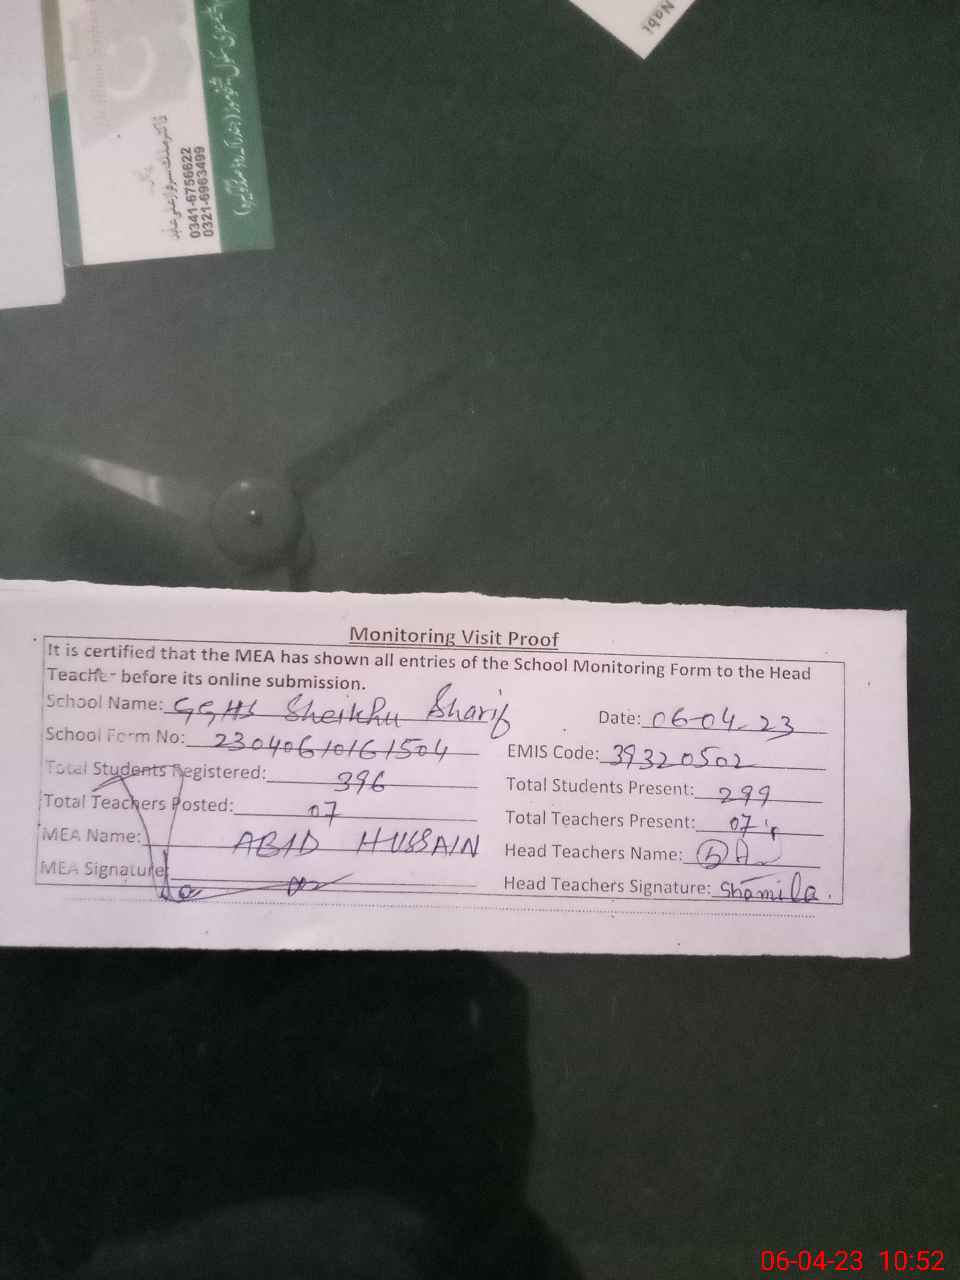 Nabi
0341-6756622
0321-6963499
Monitoring Visit Proof
It is certified that the MEA has shown all entries of the School Monitoring Form to the Head
Teacher before its online submission.
School Name: GGHS Sheikhu Sharif Date: 06-04-23
School Form No: 23040610161504 EMIS Code: 39320502
Total Students Registered: 396 Total Students Present: 299
Total Teachers Posted: 07 Total Teachers Present: 07
MEA Name: ABID HUSSAIN Head Teachers Name:
MEA Signature: Head Teachers Signature: Shamila.
06-04-23 10:52